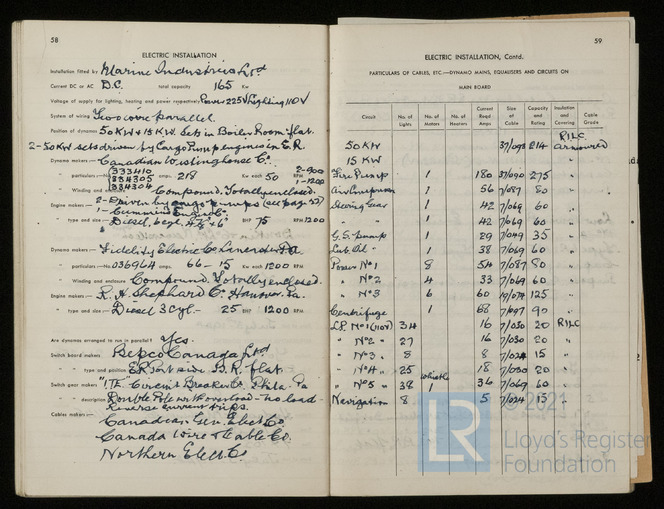 58
ELECTRIC INSTALLATION
Installation fitted by Marine Industries Ltd
Current DC or AC D.C. total capacity 165 Kw
Voltage of supply for lighting, heating and power respectively Power 225V Lighting 110V
System of wiring Two wire parallel.
Position of dynamos 50KW & 15KW. Sets in Boiler Room flat.
2-50 KW sets driven by Cargo Pump engines in E.R.
Dynamo makers:— Canadian Westinghouse Co.
" particulars—No. 333410 334305 334304 amps. 218 Kw each 50 RPM 2-900 1-1200
" Winding and enclosure Compound. Totally enclosed.
Engine makers:— 2-Driven by cargo pumps (see page 52)
1-Cummins Engine Co.
" type and Diesel. 6 cyl. BHP 75 RPM 1200
Dynamo makers:— Fidelity Electric Co. Lancaster Pa
" particulars—No. 036964 amps. 66 - 15 Kw each 1200 RPM
" Winding and enclosure Compound. Totally enclosed.
Engine makers:— R. H. Shephard Co. Hanover, Pa.
" type and Diesel 3 Cyl. - 25 BHP 1200 RPM
Are dynamos arranged to run in parallel? Yes.
Switch board makers Bepco Canada Ltd
" type and position E.R. Port side B.R. flat
Switch gear makers "I.T.E." Circuit Breaker Co. Phila. Pa
" description Double Pole with overload - no load -
Reverse current trips.
Cables makers:— Canadian Gen. Elect Co.
Canada Wire & Cable Co.
Northern Elect. Co
59
ELECTRIC INSTALLATION, Contd.
PARTICULARS OF CABLES, ETC.—DYNAMO MAINS, EQUALISERS AND CIRCUITS ON
MAIN BOARD
Circuit No. of Lights No. of Motors No. of Heaters Current Reqd Amps Size of Cable Capacity and Rating Insulation and Covering Cable Grade
R.I.L.C.
50 KW 37/093 214 armoured
15 KW "
Fire Pump 1 180 37/090 275 "
Air Compressor 1 56 7/087 80 "
Steering Gear 1 42 7/069 60 "
" " 1 42 7/069 60 "
G.S. Pump 1 29 7/049 35 "
Lub. Oil " 1 38 7/069 60 "
Power No 1 8 54 7/087 80 "
" No 2 4 33 7/069 60 "
" No 3 6 60 19/074 125 "
Centrifuge 1 68 7/097 90 "
L.P. No 1 (110V) 34 16 7/030 20 R.I.L.C
" No 2 " 27 16 7/030 20 "
" No 3 " 8 8 7/024 15 "
" No 4 " 25 18 7/030 20 "
" No 5 " 38 whistle 1 36 7/069 60 "
Navigation 8 5 7/024 15 "
LR
© 2021
Lloyd's Register
Foundation